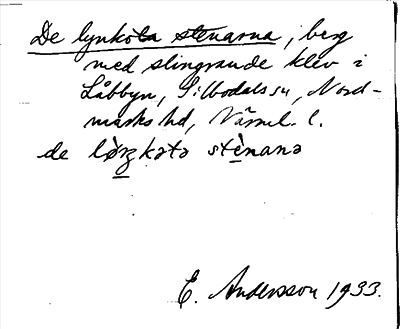 De lynkota stenarna, berg
med slingrande klev i
Låbbyn, Silbodals sn, Nord-
marks hd, Värml. l.
de lòŋkətə stènanə
E. Andersson 1933.